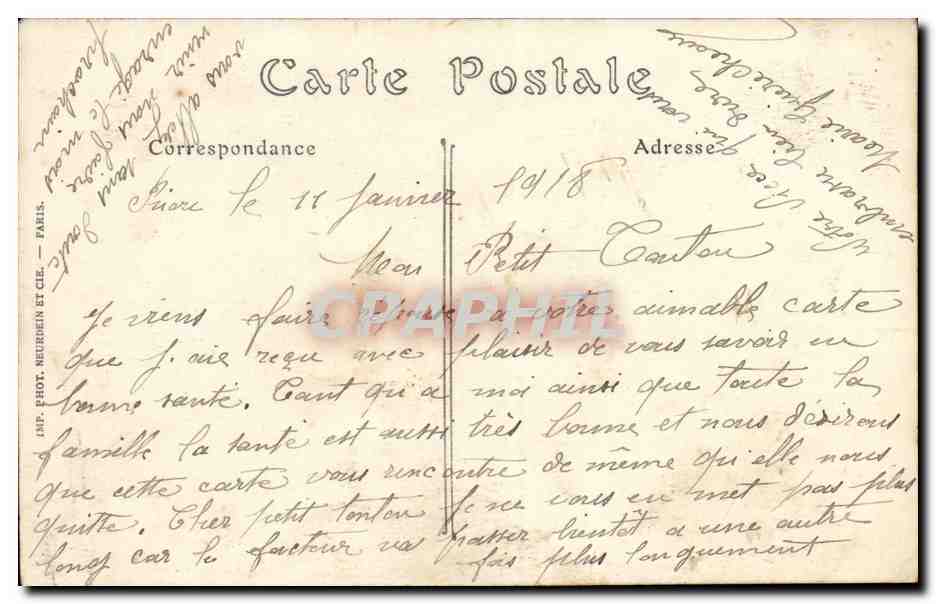 Carte Postale
Correspondance
Adresse
le 11 Janvier 1918
Mon Petit Tonton
Je viens faire réponse a votre aimable carte
que j'aie reçu avec plaisir de vous savoir en
bonne santé. Tant qu'a moi ainsi que toute la
famille la santé est aussi très bonne et nous désirons
que cette carte vous rencontre de même qu'elle nous
quitte. Cher petit tonton je ne vous en met pas plus
long car le facteur va passer bientôt a une autre
fois plus longuement
Votre Nièce qui vous
embrasse bien
Marie
vous allez sans doute
venir nous
mois
prochain
IMP. PHOT. NEURDEIN ET CIE. — PARIS.
CPAPHIL